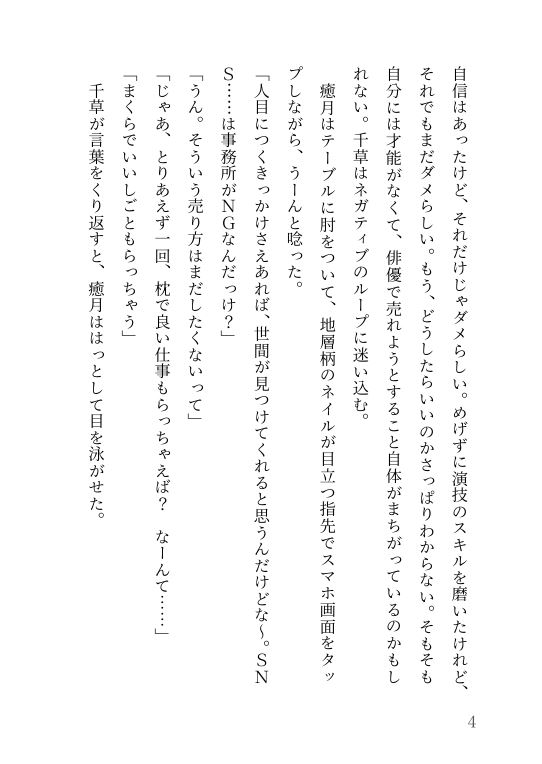 自信はあったけど、それだけじゃダメらしい。めげずに演技のスキルを磨いたけれど、
それでもまだダメらしい。もう、どうしたらいいのかさっぱりわからない。そもそも
自分には才能がなくて、俳優で売れようとすること自体がまちがっているのかもし
れない。千草はネガティブのループに迷い込む。
　癒月はテーブルに肘をついて、地層柄のネイルが目立つ指先でスマホ画面をタッ
プしながら、うーんと唸った。
「人目につくきっかけさえあれば、世間が見つけてくれると思うんだけどな～。ＳＮ
Ｓ……は事務所がＮＧなんだっけ？」
「うん。そういう売り方はまだしたくないって」
「じゃあ、とりあえず一回、枕で良い仕事もらっちゃえば？　なーんて……」
「まくらでいいしごともらっちゃう」
　千草が言葉をくり返すと、癒月ははっとして目を泳がせた。
4